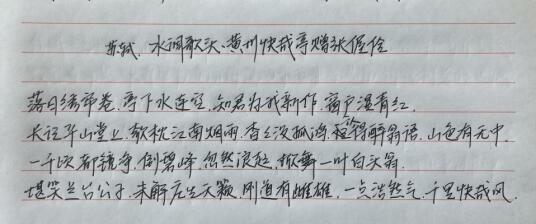 苏轼.水调歌头.黄州快哉亭赠张偓佺
落日绣帘卷.亭下水连空.知君为我新作.窗户湿青红.
长记平山堂上.欹枕江南烟雨.杳杳没孤鸿.认得醉翁语.山色有无中.
一千顷.都镜净.倒碧峰.忽然浪起.掀舞一叶白头翁.
堪笑兰台公子.未解庄生天籁.刚道有雌雄.一点浩然气.千里快哉风.